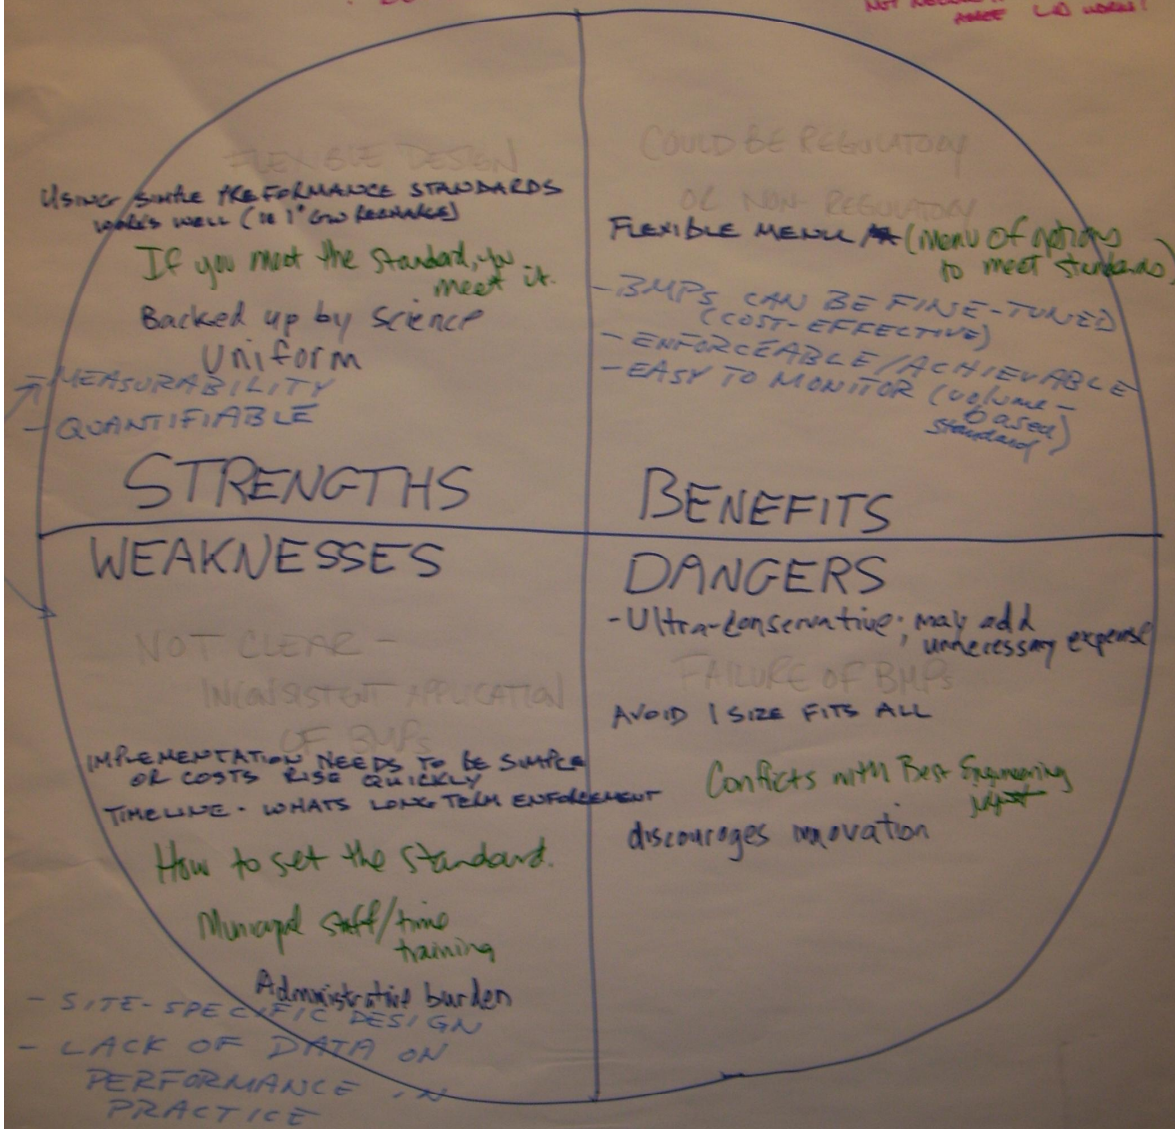 NOT
AGREE LID WORKS!
FLEXIBLE DESIGN
USING SIMPLE PREFORMANCE STANDARDS
WORKS WELL (IE 1" GW RECHARGE)
If you meet the standard, you
meet it.
Backed up by science
Uniform
- MEASURABILITY
- QUANTIFIABLE
STRENGTHS
COULD BE REGULATORY
OR NON-REGULATORY
FLEXIBLE MENU (menu of options
to meet standards)
- BMPS CAN BE FINE-TUNED
(COST-EFFECTIVE)
- ENFORCEABLE/ACHIEVABLE
- EASY TO MONITOR (volume-
based
standard)
BENEFITS
WEAKNESSES
NOT CLEAR -
INCONSISTENT APPLICATION
OF BMPs
IMPLEMENTATION NEEDS TO BE SIMPLE
OR COSTS RISE QUICKLY
TIMELINE - WHATS LONG TERM ENFORCEMENT
How to set the standard.
Municipal staff/time
training
Administrative burden
- SITE-SPECIFIC DESIGN
- LACK OF DATA ON
PERFORMANCE IN
PRACTICE
DANGERS
- Ultra-conservative; may add
unnecessary expense
FAILURE OF BMPs
AVOID 1 SIZE FITS ALL
Conflicts with Best Engineering
discourages innovation